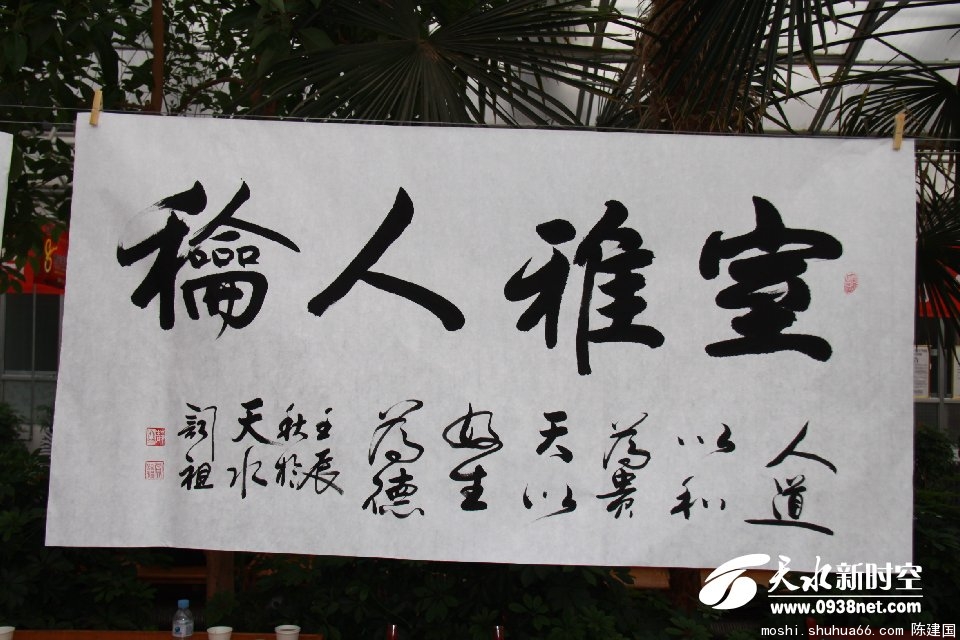 室雅人龢
人道
以和
為貴
天以
好生
為德
壬辰
秋於
天水
天水新时空
www.0938net.com
moshi.shuhua66.com 陈建国